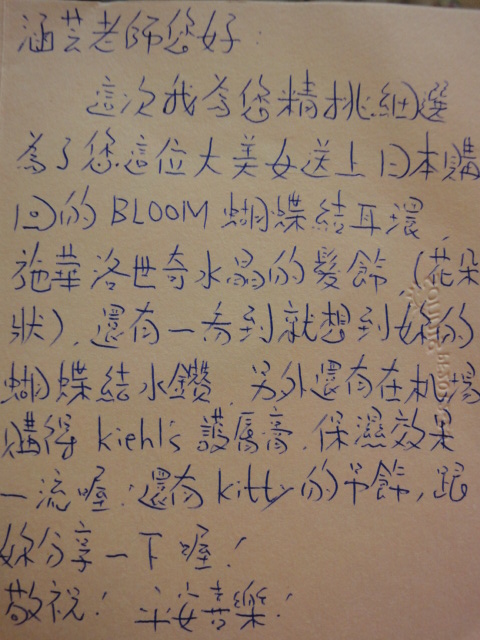 涵芸老師您好:
這次我為您精挑細選
為了您這位大美女送上日本購
回的BLOOM蝴蝶結耳環,
施華洛世奇水晶的髮飾,(花朵
狀),還有一看到就想到妳的
蝴蝶結水鑽,另外還有在机場
購得kiehl's護唇膏,保濕效果
一流喔!還有kitty的吊飾,跟
妳分享一下喔!
敬祝!平安喜樂!